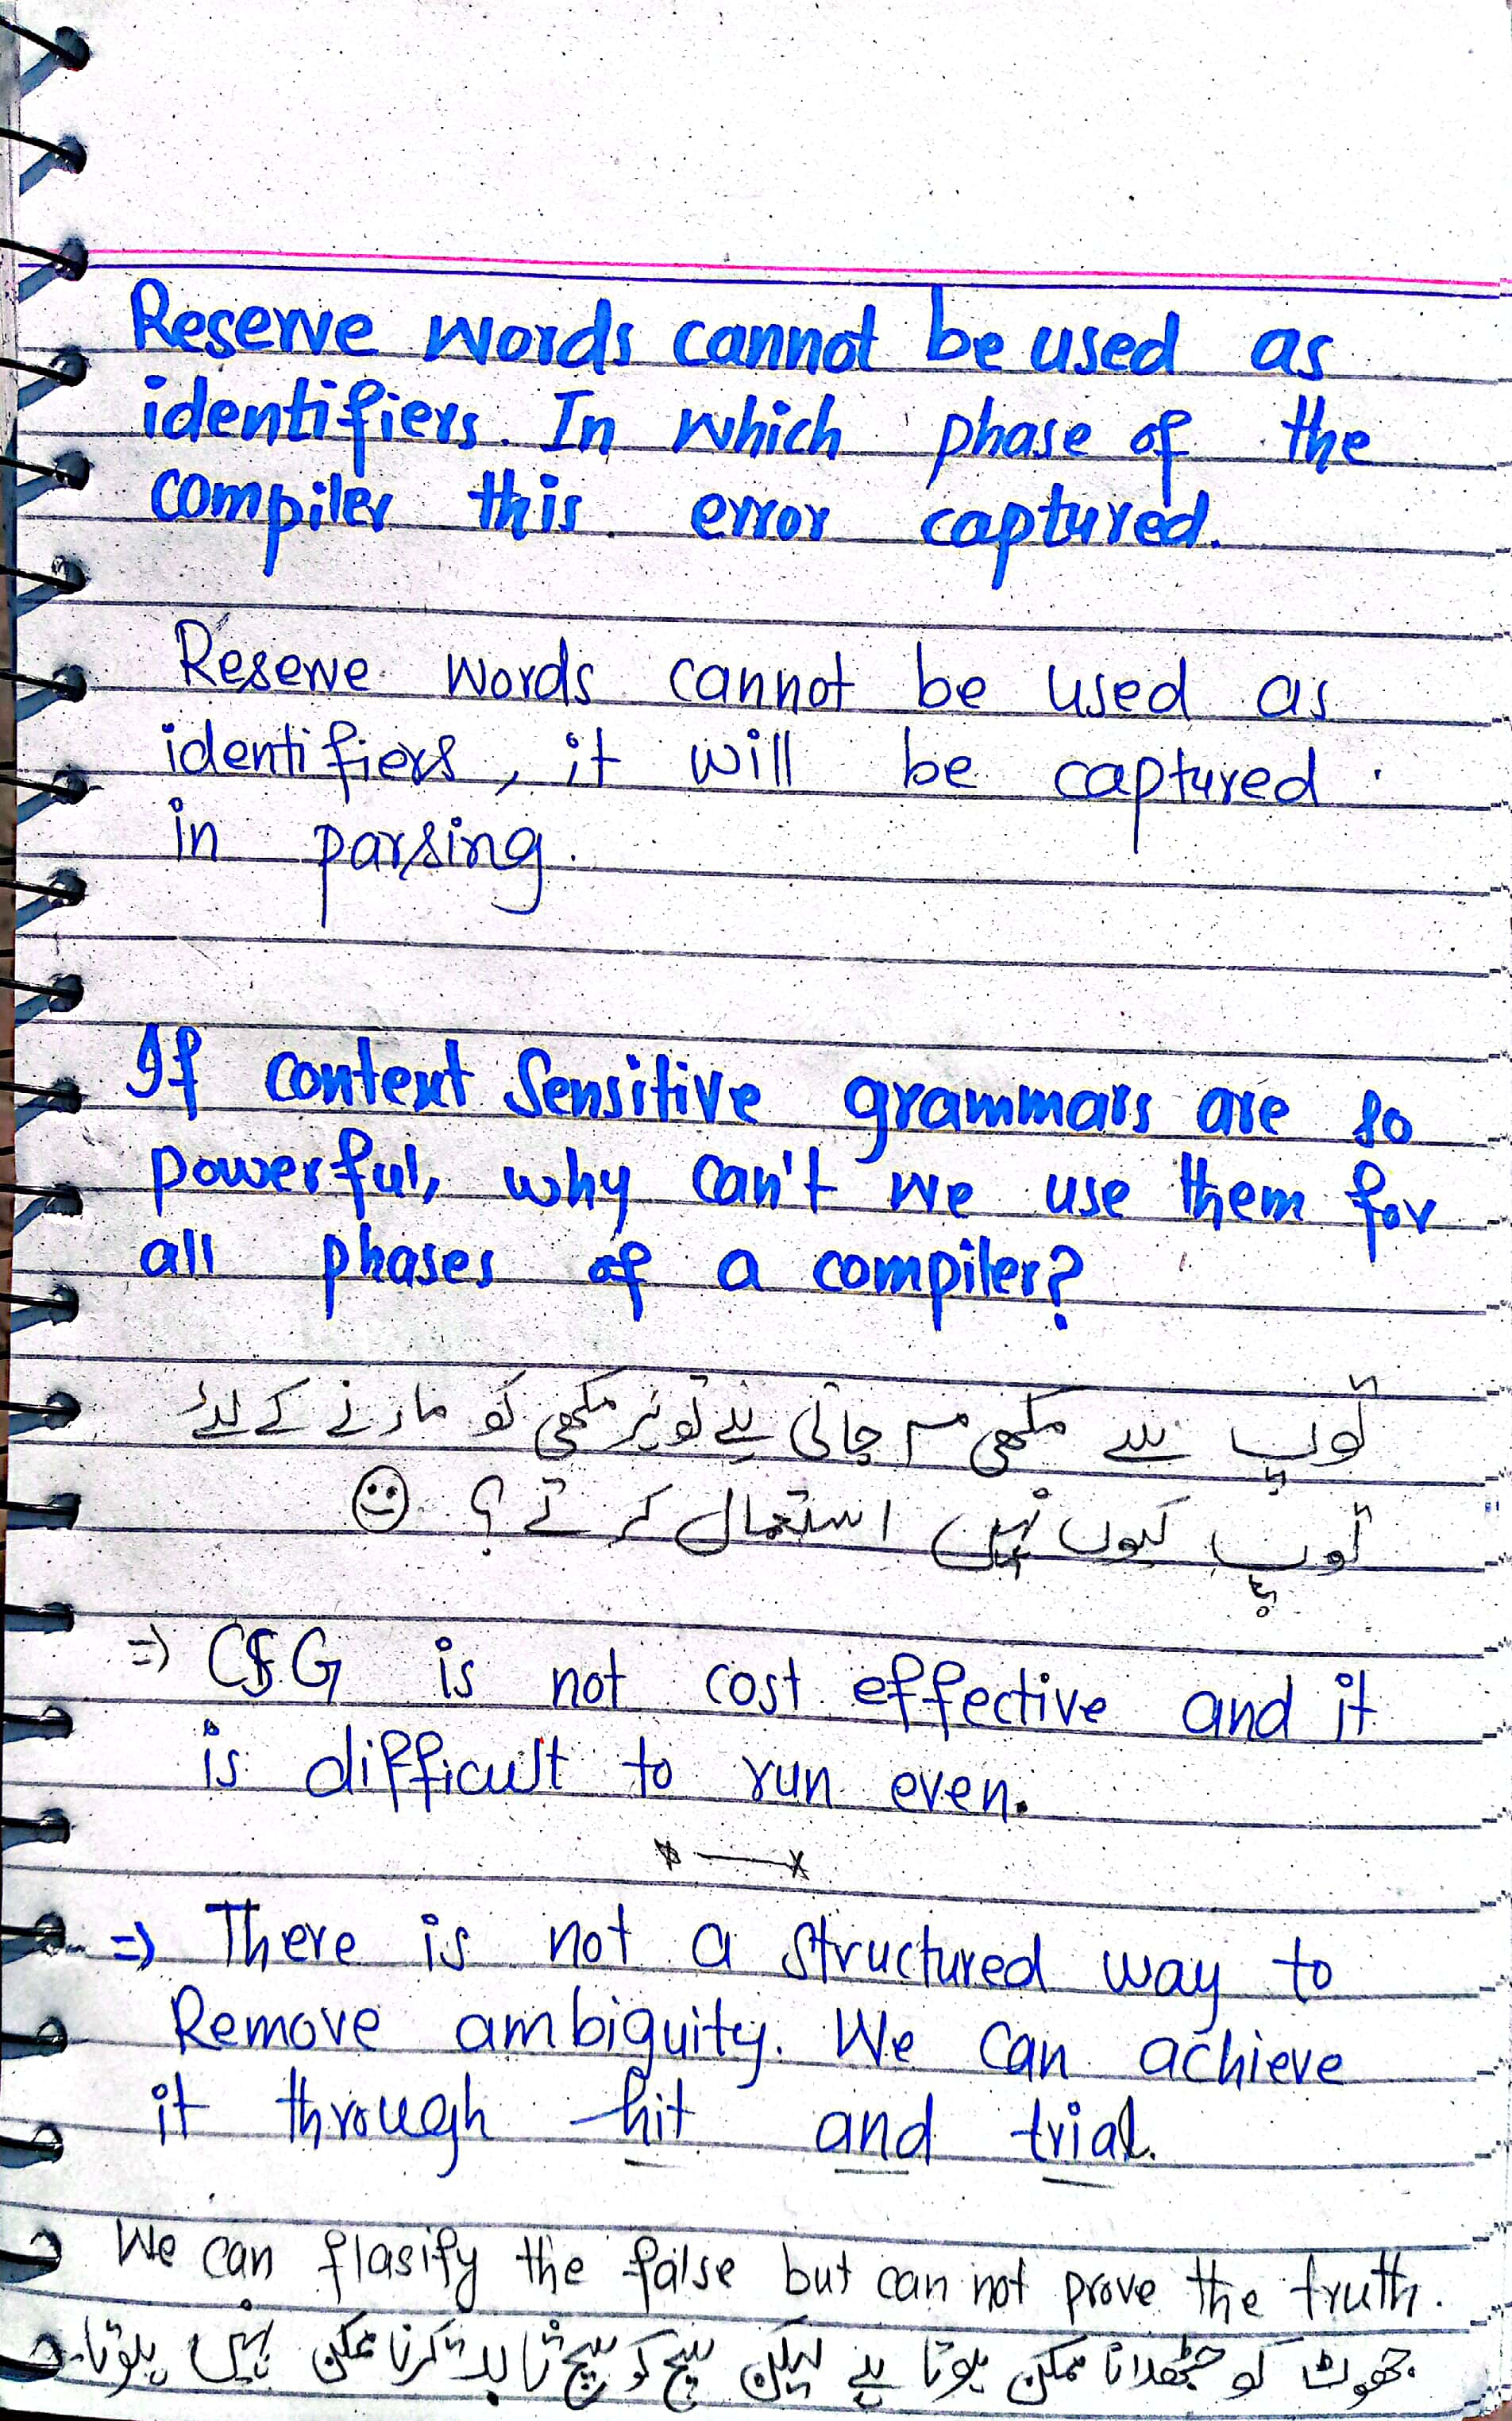 Reserve words cannot be used as
identifiers. In which phase of the
compiler this error captured.
Reserve words cannot be used as
identifiers, it will be captured
in parsing.
If context Sensitive grammars are so
powerful, why can't we use them for
all phases of a compiler?
توپ سے مکھی مر جاتی ہے تو پر مکھی کو مارنے کے لئے
توپ کیوں نہیں استعمال کرتے؟
=> CSG is not cost effective and it
is difficult to run even.
=> There is not a structured way to
Remove ambiguity. We can achieve
it through hit and trial.
We can flasify the false but can not prove the truth.
جھوٹ کو جھٹلانا ممکن ہوتا ہے لیکن سچ کو سچ ثابت کرنا ممکن نہیں ہوتا۔